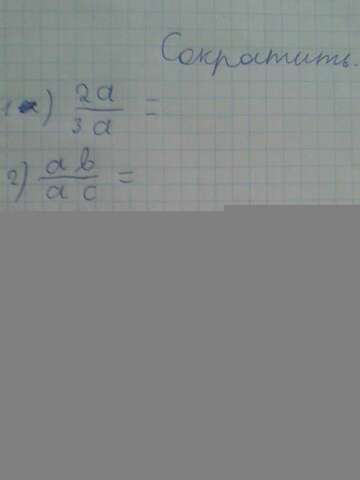 Сократить.
а) 2a/3a =
2) ab/ac =